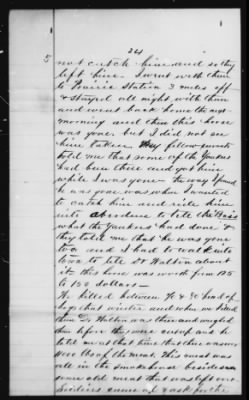 24
5
not catch him and so they
left him. I went with them
to Prairie Station 3 miles off
& stayed all night with them
and went back home the next
morning and then this horse
was gone but I did not see
him taken. My fellow servants
told me that some of the Yankees
had been there and got him
while I was gone. The way I found
he was gone was when I wanted
to catch him and ride him
into Aberdeen to tell
what the Yankees had done &
they told me that he was gone
too and I had to walk into
town to tell Dr Walton about
it this horse was worth from 125
to 150 dollars—
We killed between 70 & 80 head of
hogs that winter and when we killed
them Dr. Walton was there and weighed
them before they were cut up and he
told me at that time that there was over
lbs of the meat. This meat was
all in the smoke house besides
some old meat that was left over